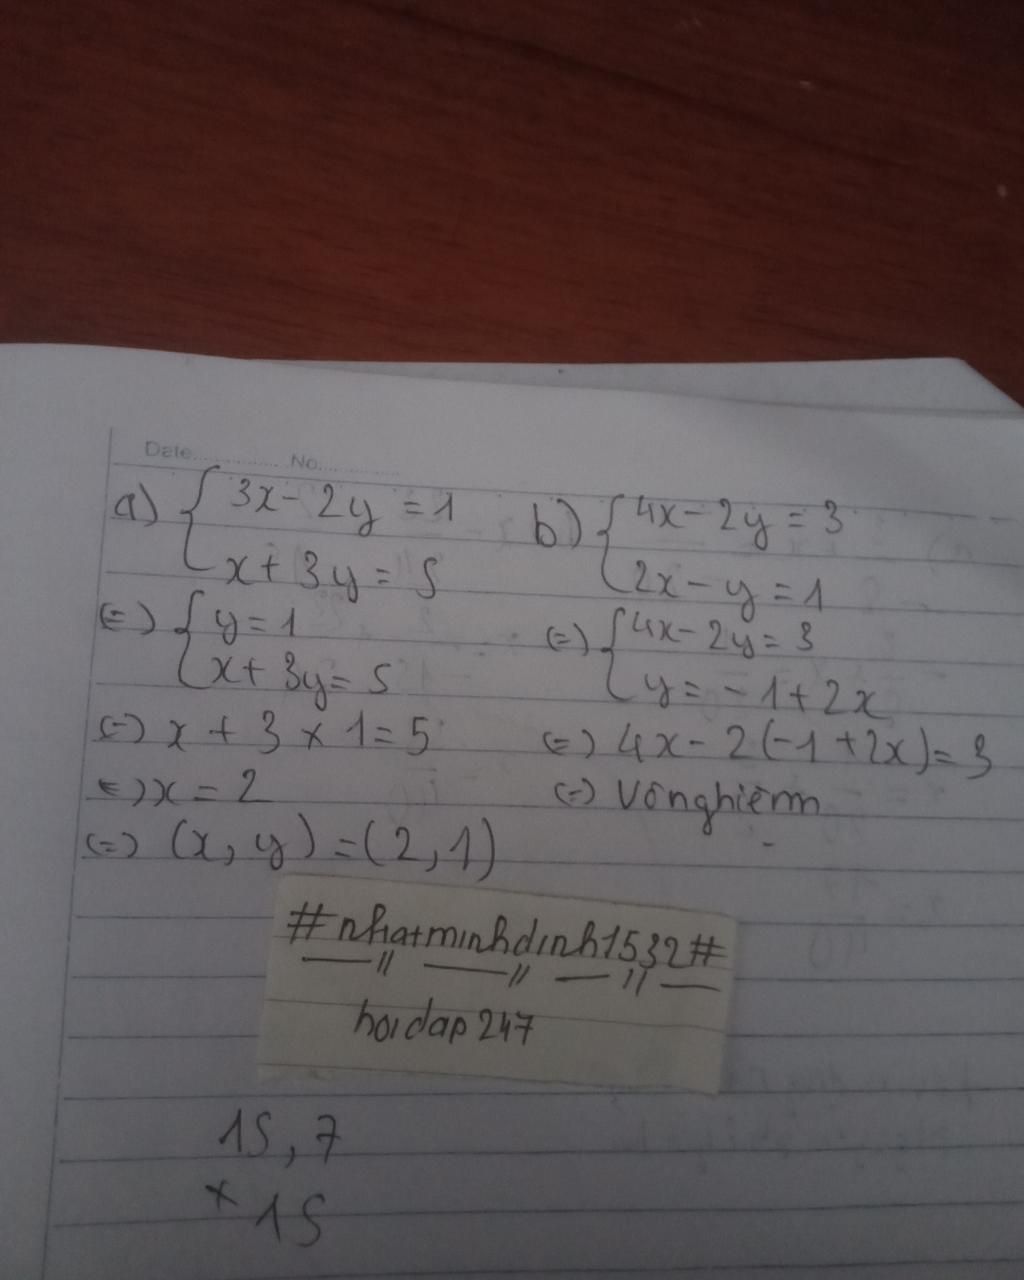 Date.............. No..............
a) { 3x - 2y = 1
x + 3y = 5
(=) { y = 1
x + 3y = 5
(=) x + 3 x 1 = 5
(=) x = 2
(=) (x, y) = (2, 1)
b) { 4x - 2y = 3
2x - y = 1
(=) { 4x - 2y = 3
y = -1 + 2x
(=) 4x - 2(-1 + 2x) = 3
(=) Vô nghiệm
#nhatminhdinh1532#
hoidap247
15,7
x 15